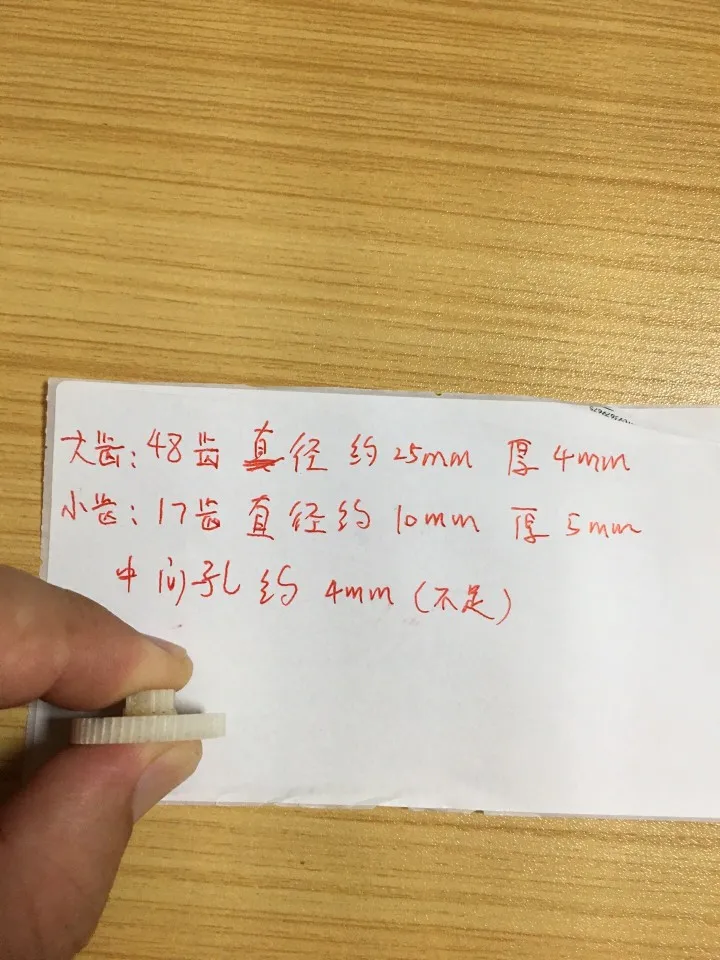 大齿：48齿 直径 约25mm 厚4mm
小齿：17齿 直径约10mm 厚5mm
中间孔 约4mm（不足）